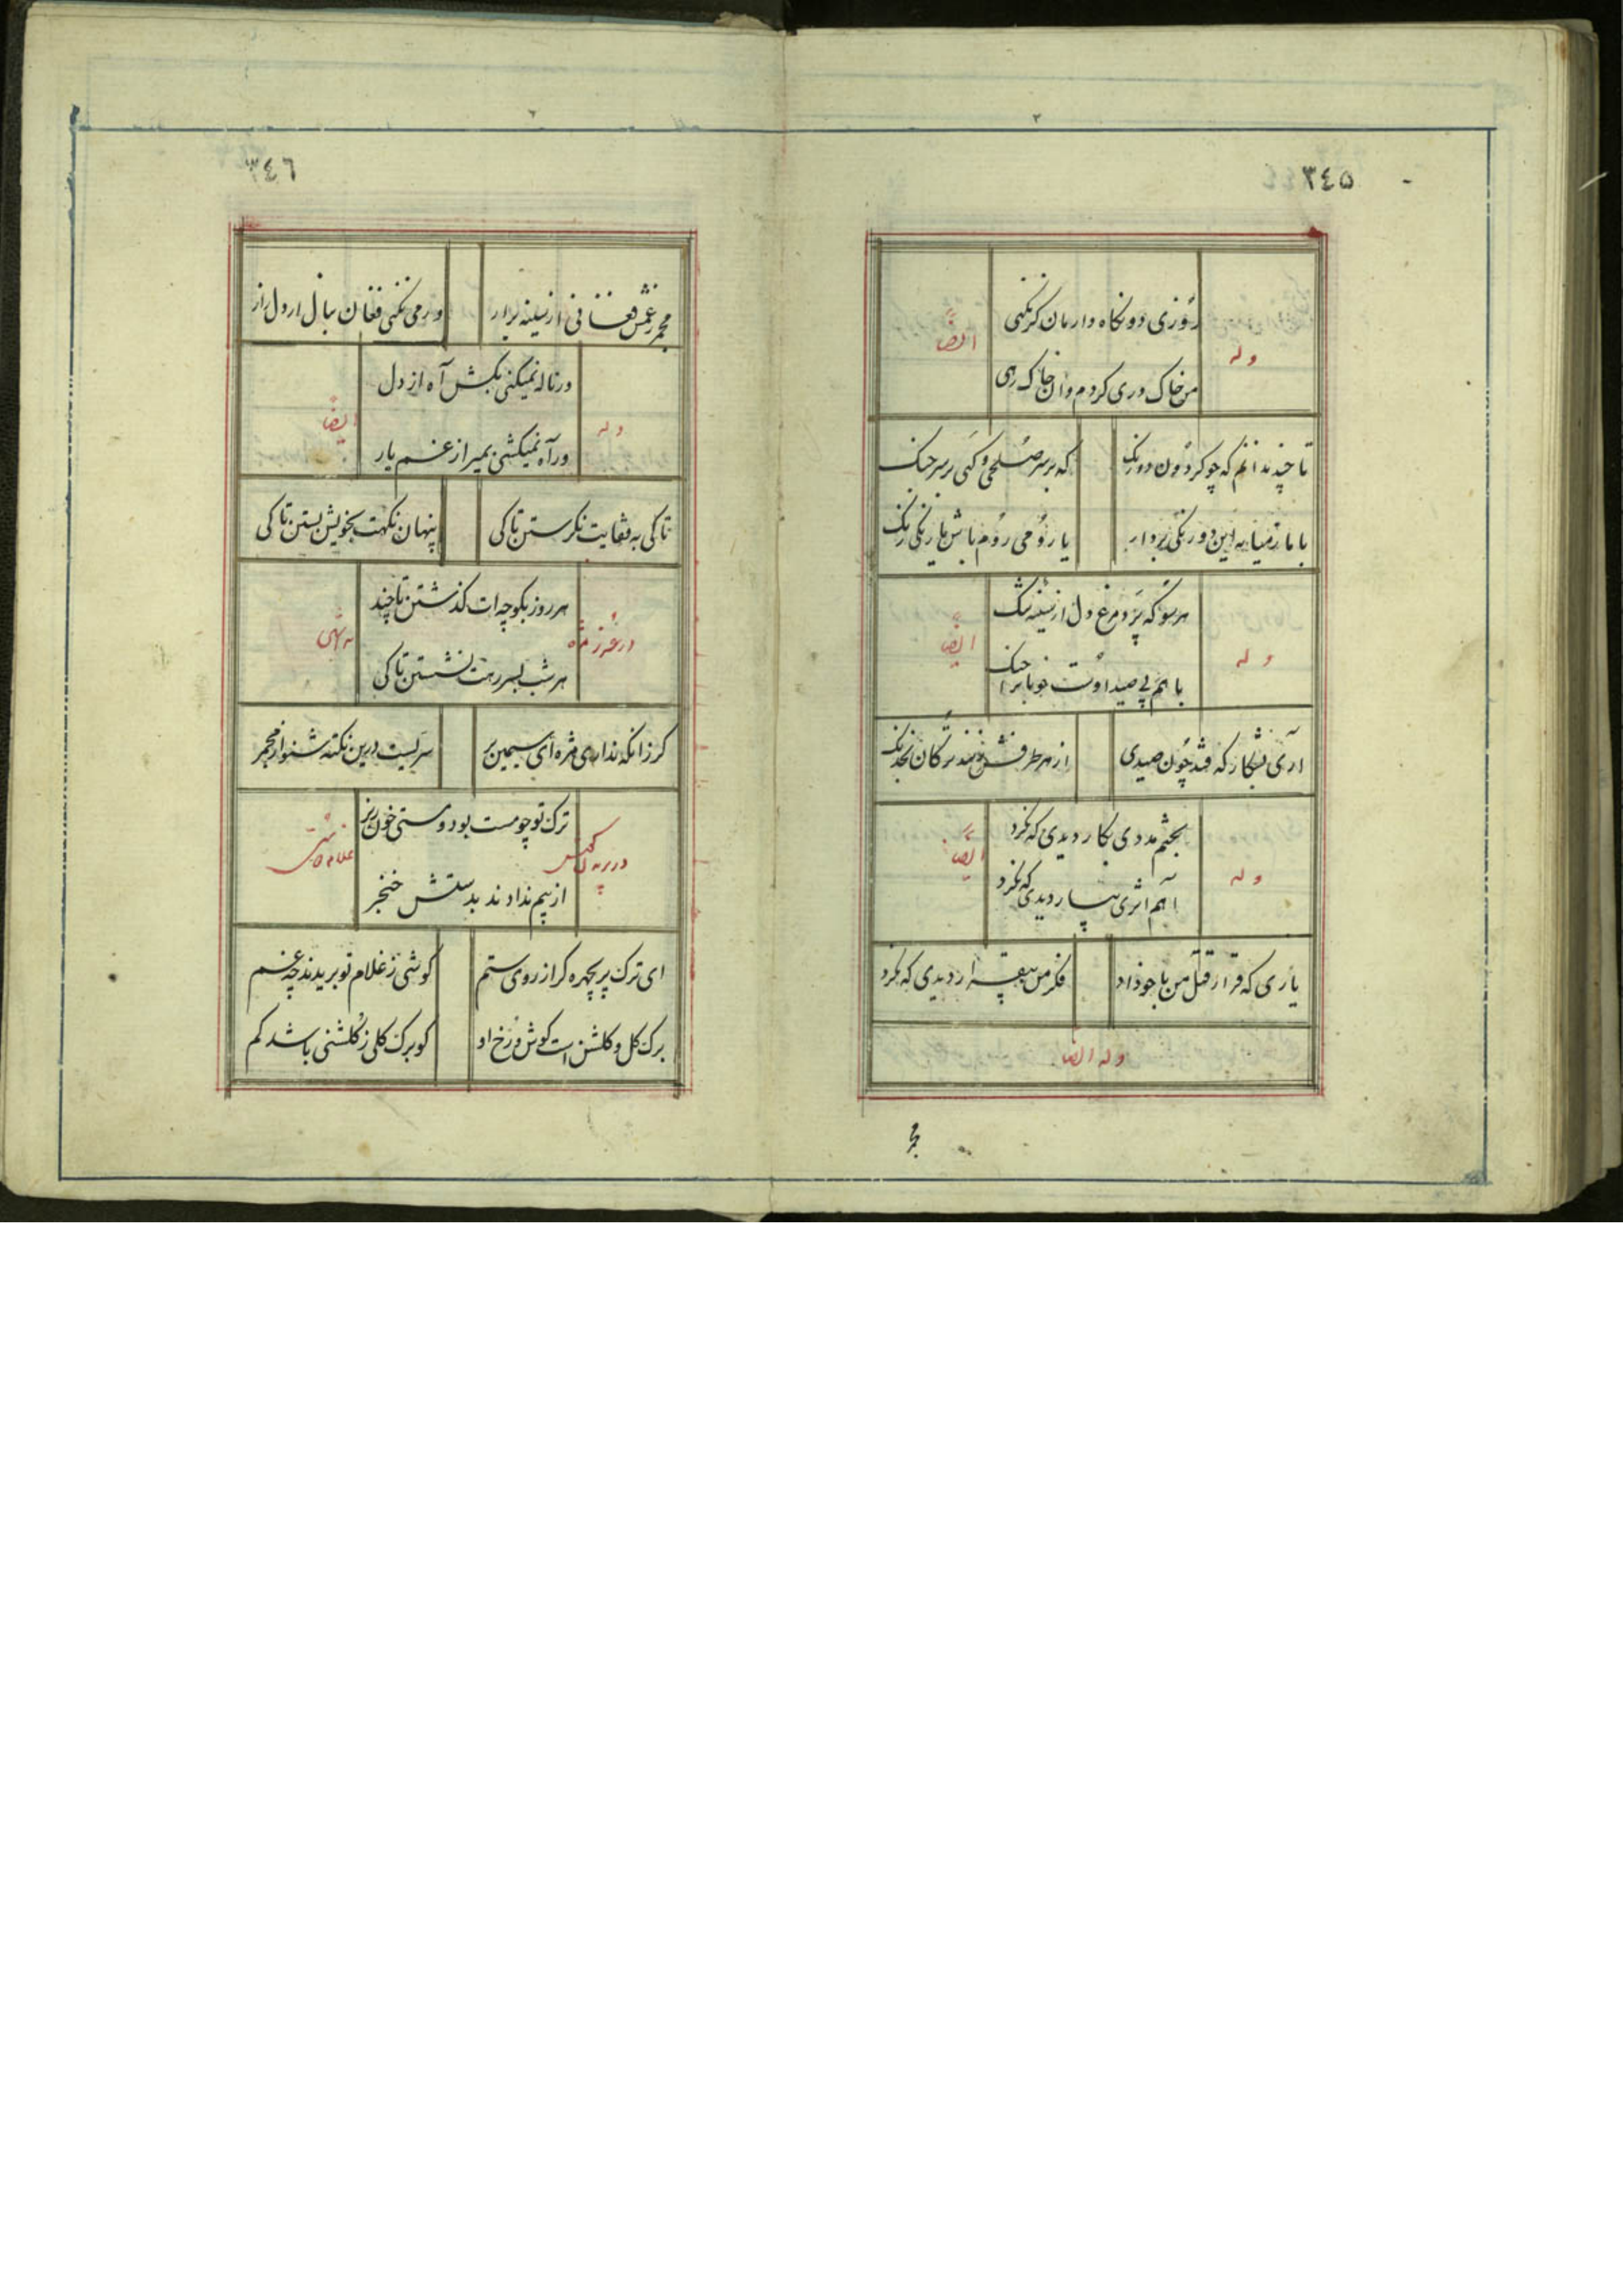 ٣٤٥
روزی دو نکاه دار مان کر نکنی
وله
ایضاً
من خاک دری کردم و ان خاک رهی
تا چند ندانم که چو کردون دورنک
که بر سر صلحی و کهی بر سر جنک
با ما ز میانه این دو رنکی بردار
یا رومی روم باش یا زنکی زنک
هر سو که پرد مرغ دل از سینه تنک
وله
ایضاً
با هم پی صید اوست خوبانرا جنک
آری بشکار که فتد چون صیدی
از هر طرفش زنند ترکان خدنک
بختم مددی بکار دیدی که نکرد
وله
ایضاً
آهم اثری بیار دیدی که نکرد
یاری که قرار قتل من با خود داد
فکر من بیقرار دیدی که نکرد
وله ایضاً
مجمر
٣٤٦
مجمر ز غمش فغانی از سینه برار
ور می نکنی فغان بنال ار دل زار
ور ناله نمیکنی بکش آه از دل
وله
ایضاً
ور آه نمیکشی بمیر از غم یار
تا کی به قفایت نکرستن تا کی
پنهان نکهت بخویش بستن تا کی
هر روز بکوچه ات کذشتن تا چند
هر شب بسر رهت نشستن تا کی
کر زانکه نداری مژه ای سیمین بر
سریست درین نکته شنو از مجمر
ترک تو چو مست بود و مستی خون ریز
از بیم ندادند بدستش خنجر
ای ترک پریچهره کر از روی ستم
کوشی ز غلام تو بریدند چه غم
برک کل و کلشن است کوش و رخ او
کو برک کلی ز کلشنی باشد کم